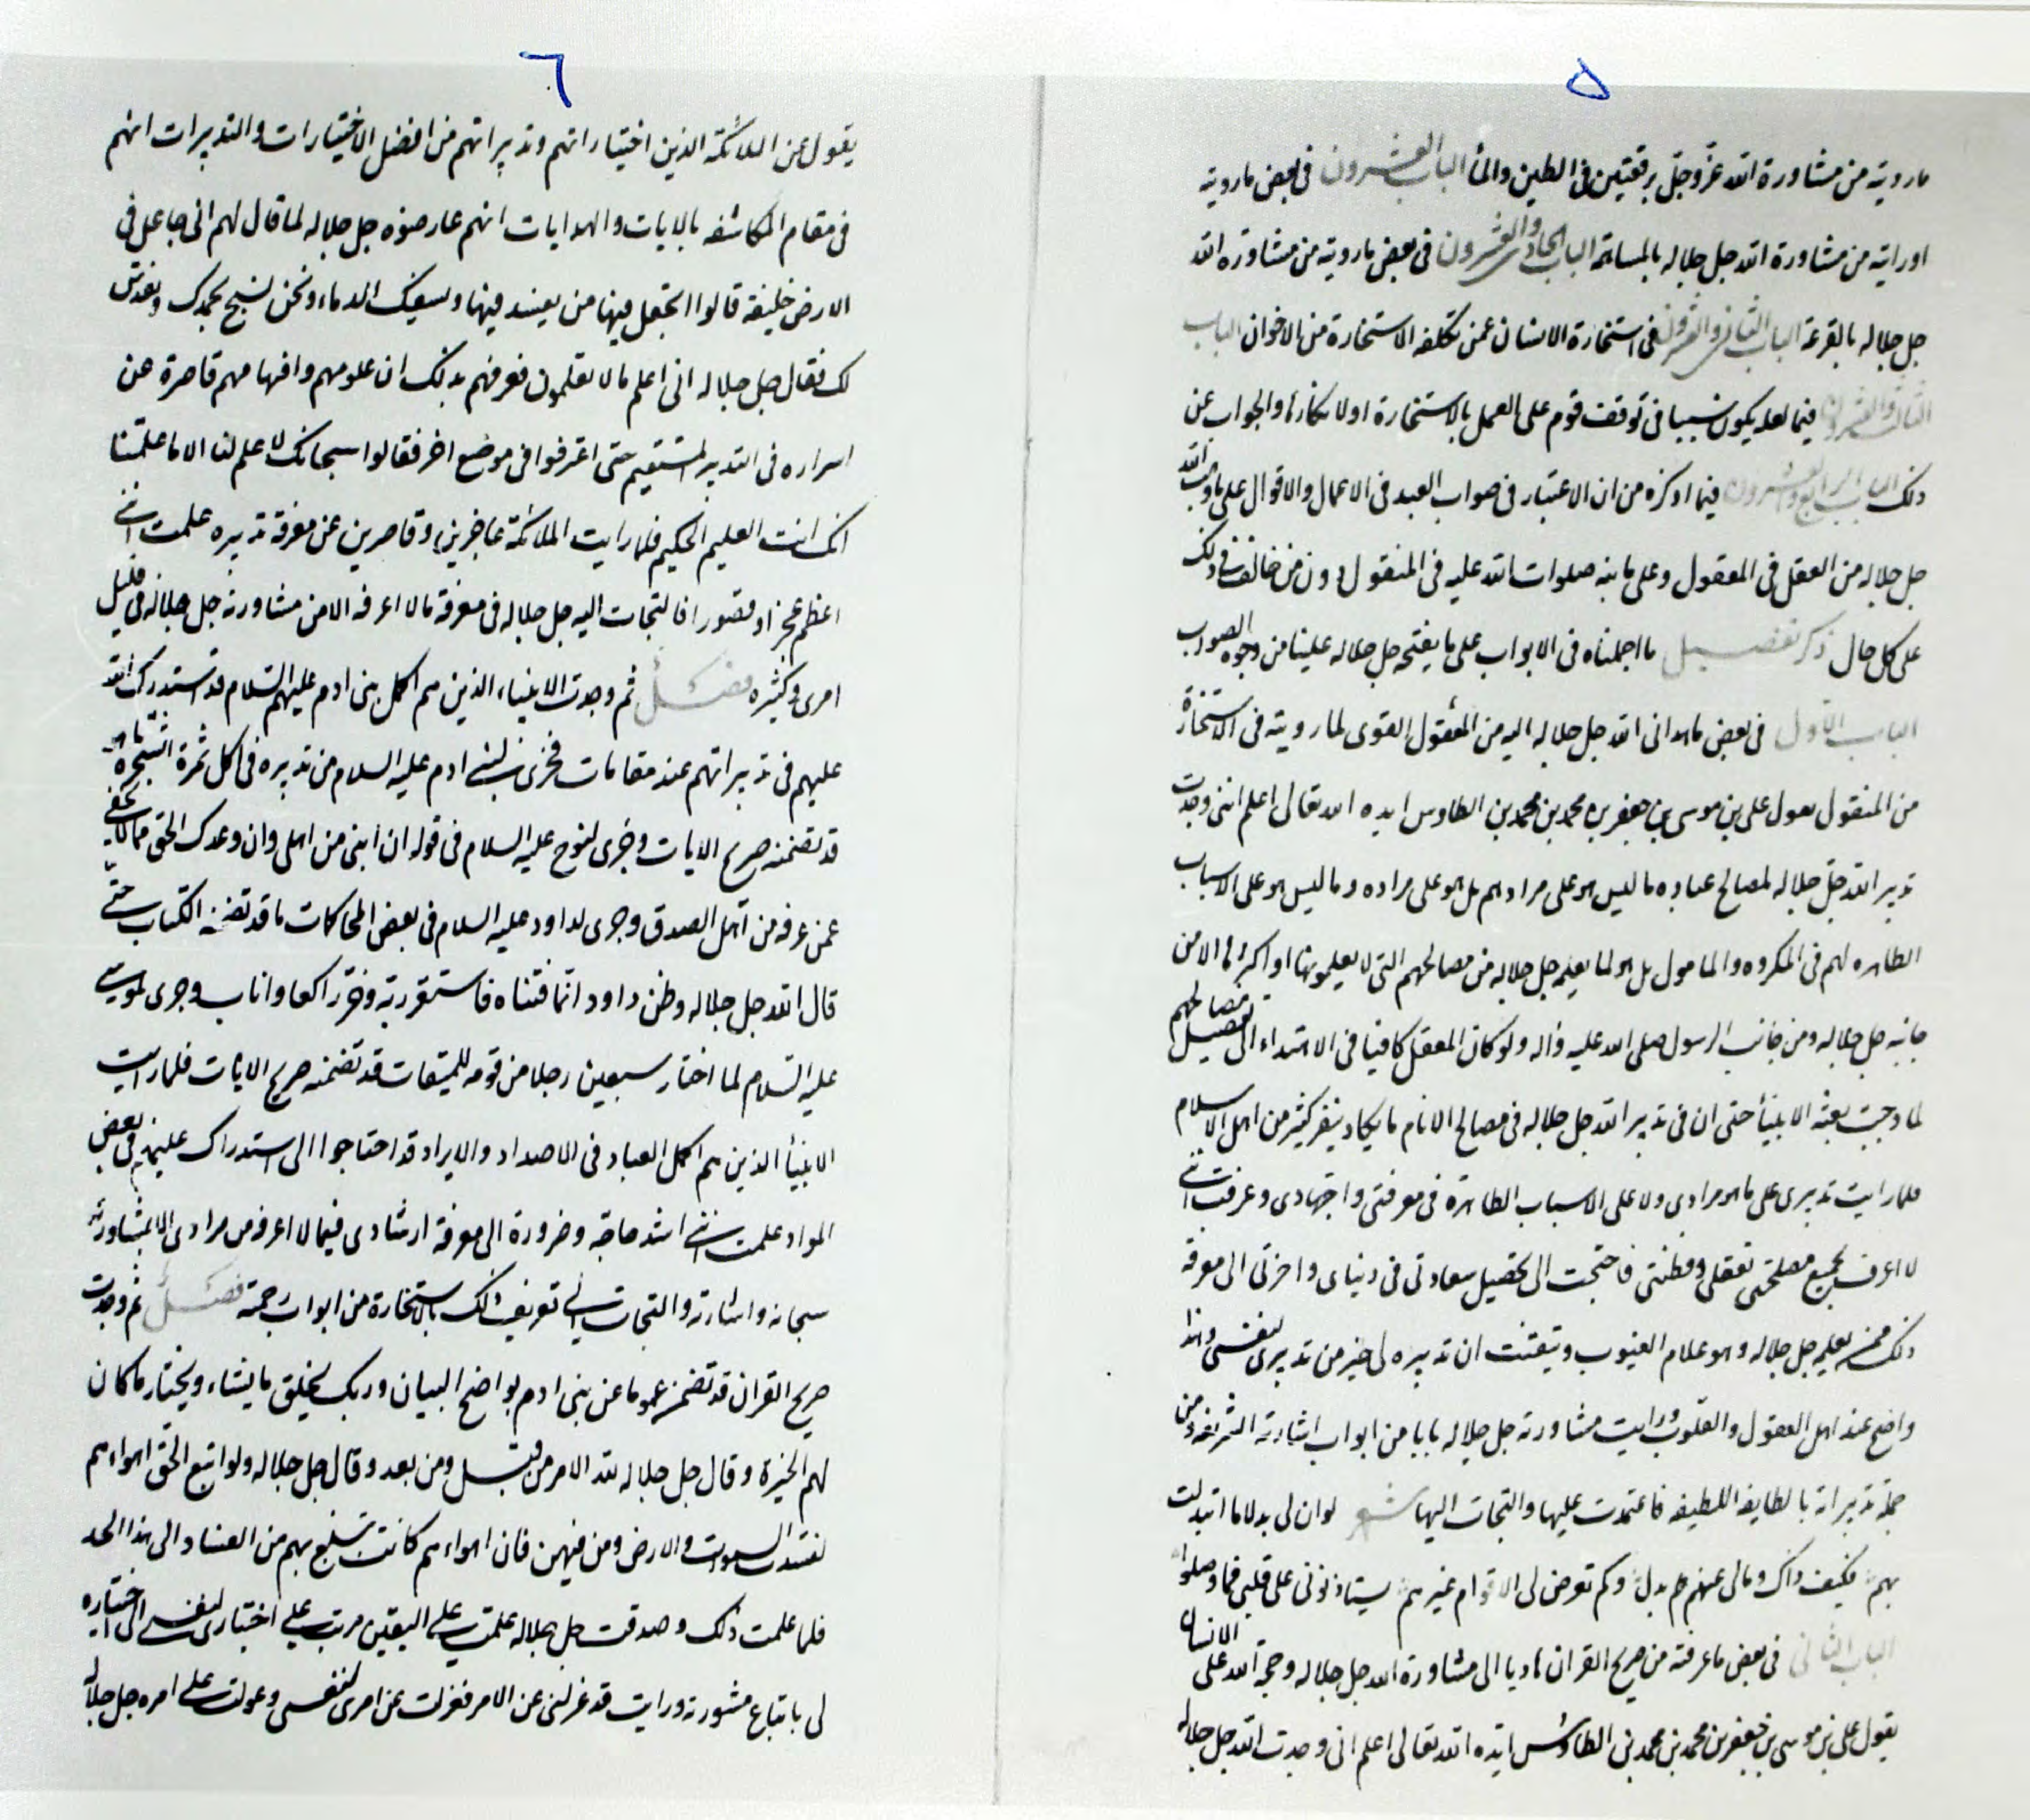 ۵
مارويته من مشاورة الله عزّ وجلّ برقعتين فى الطين والماء الباب العشرون فى بعض مارويته
اورايته من مشاورة الله جل جلاله بالمساهمة الباب الحادى والعشرون فى بعض مارويته من مشاورة الله
جل جلاله بالقرعة الباب الثانى والعشرون فى استخارة الانسان عمن تكلفه الاستخارة من الاخوان الباب
الثالث والعشرون فيما لعله يكون سببا فى توقف قوم على العمل بالاستخارة او لانكارها والجواب عن
ذلك الباب الرابع والعشرون فيما اذكره من ان الاعتبار فى صواب العبد فى الاعمال والاقوال على ما وهب الله
جل جلاله من العقل فى المعقول وعلى ما نبه صلوات الله عليه فى المنقول دون من خالف فى ذلك
على كل حال ذكر تفصيل ما اجملناه فى الابواب على ما يفتحه جل جلاله علينا من وجوه الصواب
الباب الأول فى بعض ما هدانى الله جل جلاله اليه من المعقول المقوى لما رويته فى الاستخارة
من المنقول يقول على بن موسى بن جعفر بن محمد بن محمد بن الطاوس ايده الله تعالى اعلم اننى وجدت
تدبير الله جلّ جلاله لمصالح عباده ما ليس هو على مرادهم بل هو على مراده وما ليس هو على الاسباب
الظاهره لهم فى المكروه والمامول بل هو لما يعلمه جل جلاله من مصالحهم التى لا يعلمونها او اكثرها الا من
جانبه جل جلاله ومن جانب الرسول صلى الله عليه واله ولو كان العقل كافيا فى الاهتداء الى تفصيل مصالحهم
لما وجبت بعثة الانبياء حتى ان فى تدبير الله جل جلاله فى مصالح الانام ما يكاد ينفر كثير من اهل الاسلام
فلما رايت تدبيرى على ما هو مرادى ولا على الاسباب الظاهرة فى معرفتى واجتهادى وعرفت اننى
لا اعرف جميع مصلحتى بعقلى وفطنتى فاحتجت الى تحصيل سعادتى فى دنياى واخرتى الى معرفة
ذلك ممن يعلمه جل جلاله وهو علام الغيوب وتيقنت ان تدبيره لى خير من تدبيرى لنفسى وهذا
واضح عند اهل العقول والقلوب ورايت مشاورته جل جلاله بابا من ابواب اشارته الشريفة ومن
جملة تدبيراته بالطايفه اللطيفه فاعتمدت عليها والتجات اليها شعر لو ان لى بدلا ما ابتدلت
بهم فكيف ذاك ومالى عنهم بدل وكم تعرض لى الاقوام غيرهم يستاذنونى على قلبى فما وصلوا
الباب الثانى فى بعض ما عرفته من صريح القران هاديا الى مشاورة الله جل جلاله وحجة الله على الانسان
يقول على بن موسى بن جعفر بن محمد بن محمد بن الطاوس ايده الله تعالى اعلم انى وجدت الله جل جلاله
٦
يقول عن الملائكة الذين اختياراتهم وتدبيراتهم من افضل الاختيارات والتدبيرات انهم
فى مقام المكاشفه بالايات والهدايات انهم عارضوه جل جلاله لما قال لهم انى جاعل فى
الارض خليفة قالوا اتجعل فيها من يفسد فيها ويسفك الدماء ونحن نسبح بحمدك ونقدس
لك فقال جل جلاله انى اعلم ما لا تعلمون فعرفهم بذلك ان علومهم وافهامهم قاصرة عن
اسراره فى التدبير المستقيم حتى اعترفوا فى موضع اخر فقالوا سبحانك لا علم لنا الا ما علمتنا
انك انت العليم الحكيم فلما رايت الملائكة عاجزين وقاصرين عن معرفة تدبيره علمت اننى
اعظم عجزا وقصورا فالتجات اليه جل جلاله فى معرفة ما لا اعرفه الا من مشاورته جل جلاله فى قليل
امرى وكثيره فصل ثم وجدت الانبياء الذين هم اكمل بنى ادم عليهم السلام قد استدرك الله
عليهم فى تدبيراتهم عند مقامات فجرى لبنى ادم عليه السلام من تدبيره فى اكل ثمرة الشجرة ما هو
قد تضمنه صريح الايات وجرى لنوح عليه السلام فى قوله ان ابنى من اهلى وان وعدك الحق مما لا يخفى
عمن عرفه من اهل الصدق وجرى لداود عليه السلام فى بعض المحاكمات ما قد تضمنه الكتاب حتى
قال الله جل جلاله وظن داود انما فتناه فاستغفر ربه وخرّ راكعا واناب وجرى لموسى
عليه السلام لما اختار سبعين رجلا من قومه للميقات قد تضمنه صريح الايات فلما رايت
الانبيأ الذين هم اكمل العباد فى الاصدار والايراد قد احتاجوا الى استدراك عليهم فى بعض
المراد علمت اننى اشد حاجة وضرورة الى معرفة ارشادى فيما لا اعرفه من مرادى الا بمشاورته
سبحانه واشارته والتجات الى تعريف ذلك بالاستخارة من ابواب رحمته فصل ثم وجدت
صريح القران قد تضمن عموما عن بنى ادم بواضح البيان وربك يخلق ما يشاء ويختار ما كان
لهم الخيرة وقال جل جلاله لله الامر من قبل ومن بعد وقال جل جلاله ولو اتبع الحق اهواءهم
لفسدت السموات والارض ومن فيهن فان اهواءهم كانت تبلغ بهم من الفساد الى هذا الحد
فلما علمت ذلك وصدقت جل جلاله علمت على اليقين مرتب على اختيارى لنفسى الى اختياره
لى باتباع مشورته ورايت قد عزلنى عن الامر فعزلت عن امرى لنفسى وعولت على امره جل جلاله